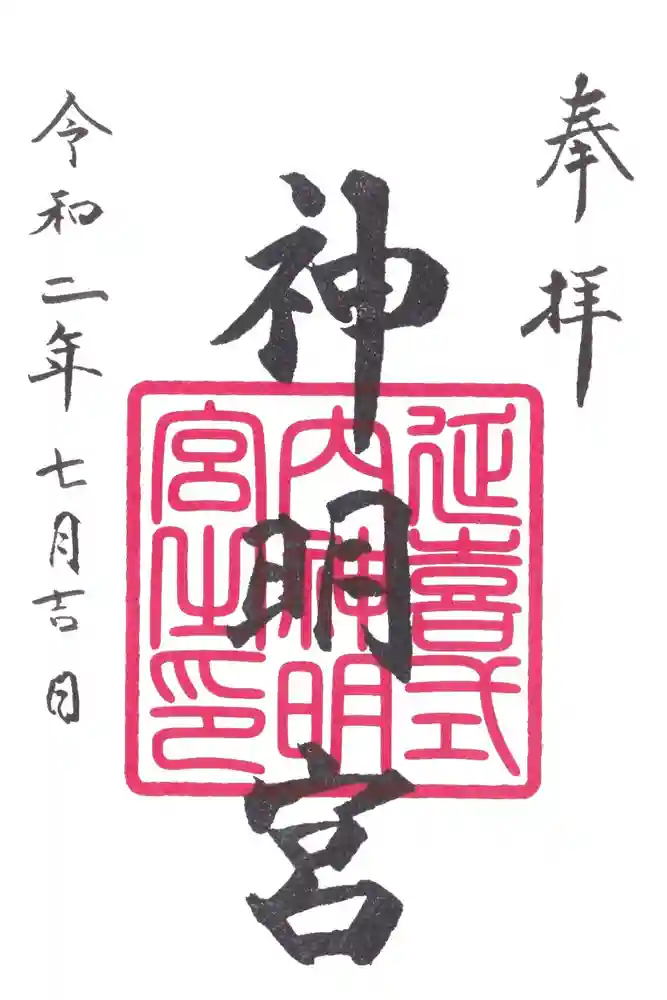 奉拝
神明宮
延喜式
内神明
宮之印
令和二年七月吉日